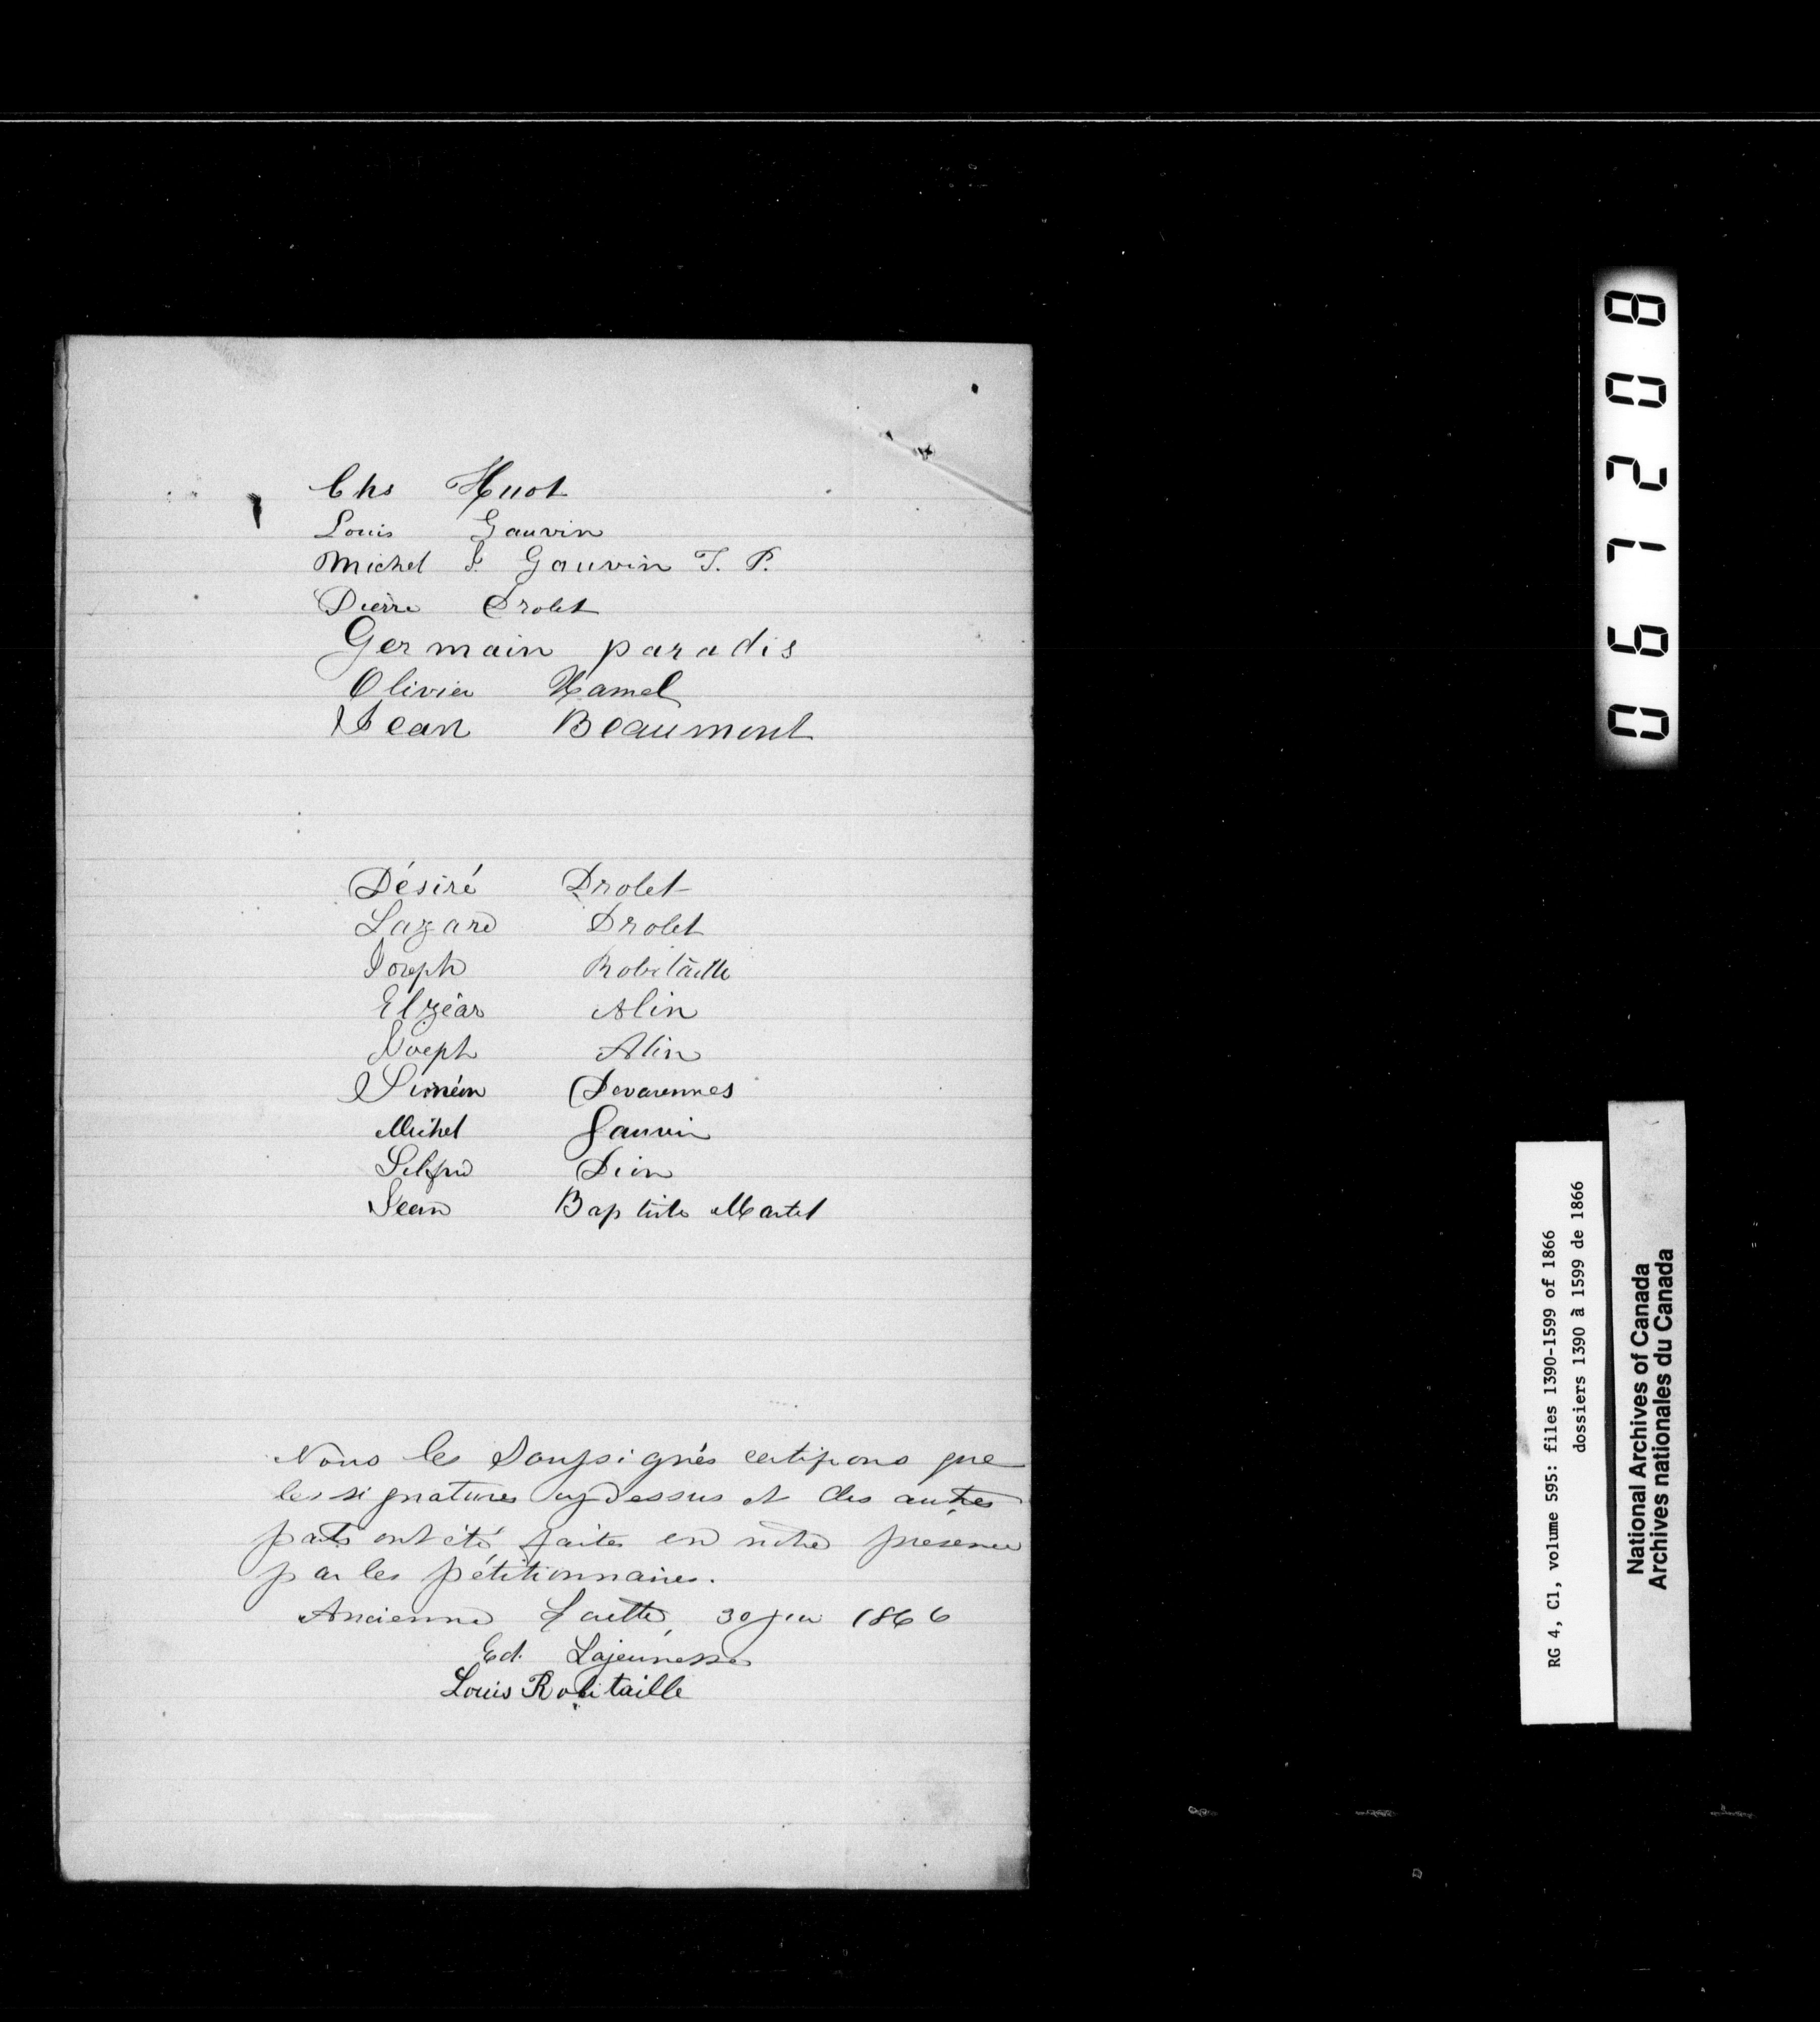 Chs Huot
Louis Gauvin
Michel J. Gauvin J. P.
Pierre Drolet
Germain paradis
Olivier Hamel
Jean Beaumont
Désiré Drolet
Lazare Drolet
Joseph Robitaille
Elzéar Alin
Joseph Alin
Siméon Devarennes
Michel Gauvin
Dion
Jean Baptiste Martel
Nous les Soussignés certifions que
les signatures cy dessus et des autres
parts ont été faites en notre présence
par les pétitionnaires.
Ancienne Lorette, 30 1866
Ed. Lajeunesse
Louis Robitaille
067208
RG 4, C1, volume 595: files 1390-1599 of 1866
dossiers 1390 à 1599 de 1866
National Archives of Canada
Archives nationales du Canada